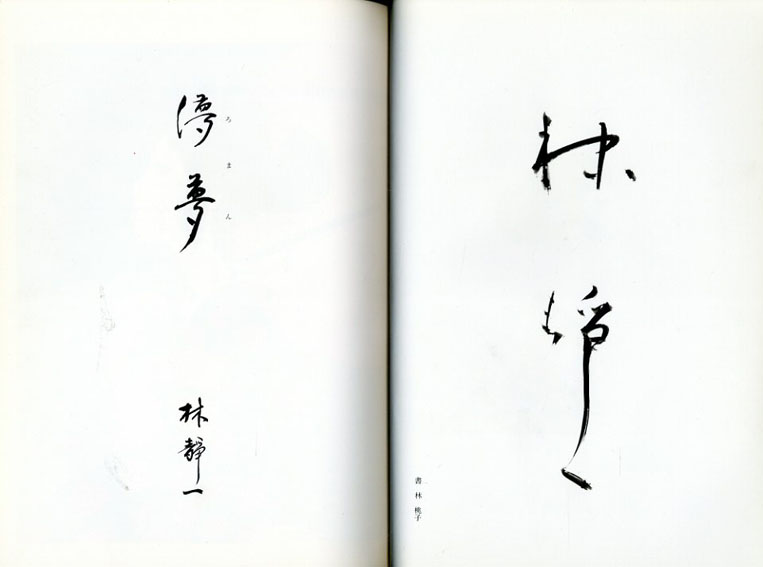 林静一
書 林 桃子
儚夢
ろまん
林静一